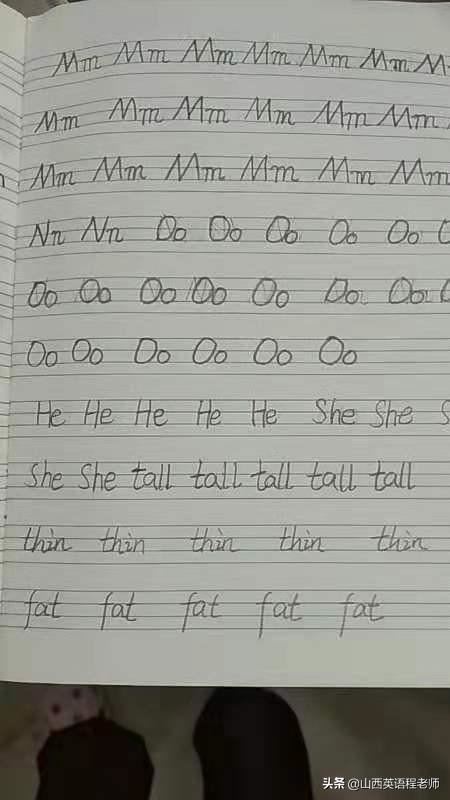 Mm Mm Mm Mm Mm Mm M
Mm Mm Mm Mm Mm Mm
Mm Mm Mm Mm Mm Mm
Nn Nn Oo Oo Oo Oo Oo
Oo Oo Oo Oo Oo Oo Oo
Oo Oo Oo Oo Oo Oo
He He He He He She She S
She She tall tall tall tall tall
thin thin thin thin thin
fat fat fat fat fat
头条 @山西英语程老师